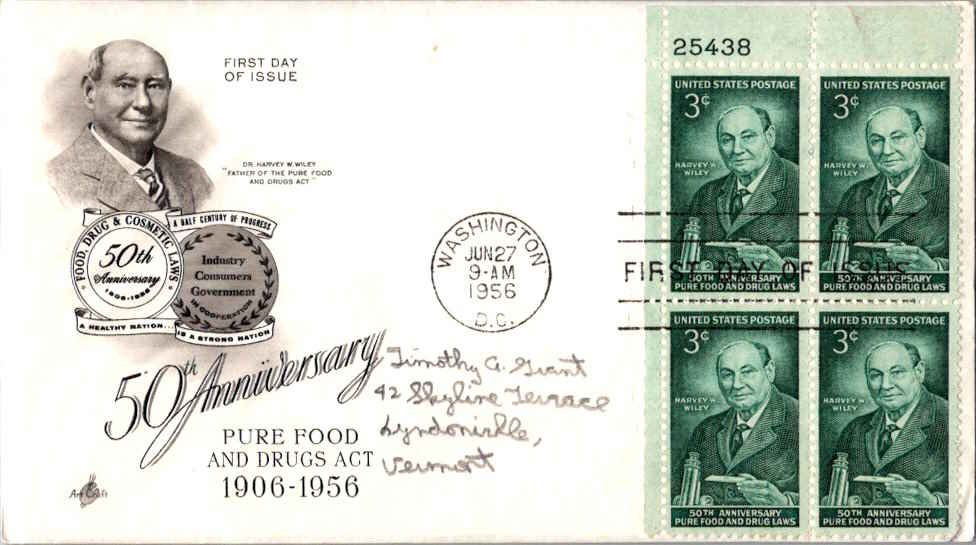 FIRST DAY
OF ISSUE
DR. HARVEY W. WILEY
"FATHER OF THE PURE FOOD
AND DRUGS ACT"
FOOD, DRUG & COSMETIC LAWS
50th
Anniversary
1906-1956
A HALF CENTURY OF PROGRESS
Industry
Consumers
Government
IN COOPERATION
A HEALTHY NATION...
IS A STRONG NATION
50th Anniversary
PURE FOOD
AND DRUGS ACT
1906-1956
Art Craft
WASHINGTON
JUN 27
9-AM
1956
D.C.
Timothy A. Grant
42 Skyline Terrace
Lyndonville,
Vermont
25438
UNITED STATES POSTAGE
3¢
HARVEY W.
WILEY
50TH ANNIVERSARY
PURE FOOD AND DRUG LAWS
UNITED STATES POSTAGE
3¢
HARVEY W.
WILEY
50TH ANNIVERSARY
PURE FOOD AND DRUG LAWS
FIRST DAY OF ISSUE
UNITED STATES POSTAGE
3¢
HARVEY W.
WILEY
50TH ANNIVERSARY
PURE FOOD AND DRUG LAWS
UNITED STATES POSTAGE
3¢
HARVEY W.
WILEY
50TH ANNIVERSARY
PURE FOOD AND DRUG LAWS